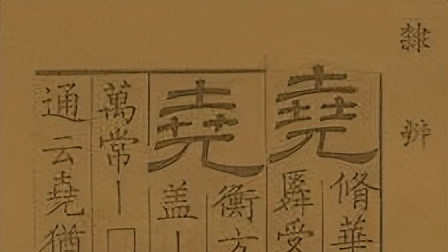 隸辨
堯
脩華
堯
衡方
盖丨
萬常丨□
通云堯猶